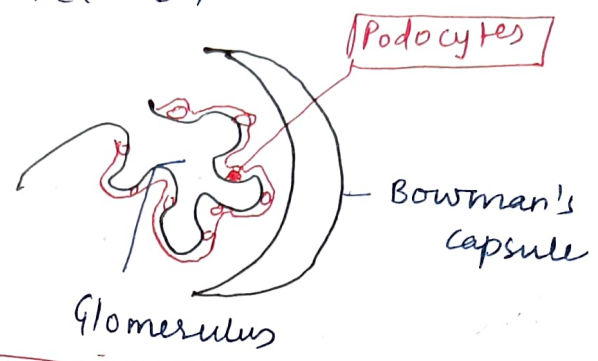 Podocytes
Bowman's
capsule
Glomerulus